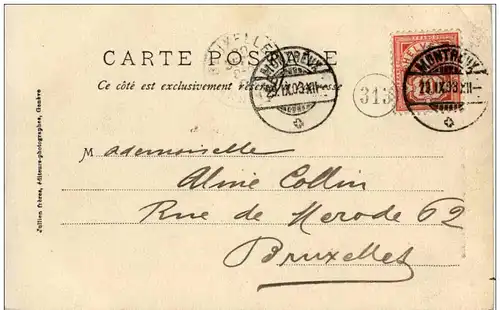 CARTE POSTALE
Ce côté est exclusivement réservé à l'adresse
BRUXELLES
MONTREUX
IX.03.XII
313
HELVETIA
MONTREUX
IX.03.XII
Mademoiselle
Aline Collin
Rue de Merode 62
Bruxelles
Jullien frères, éditeurs-photographes, Genève